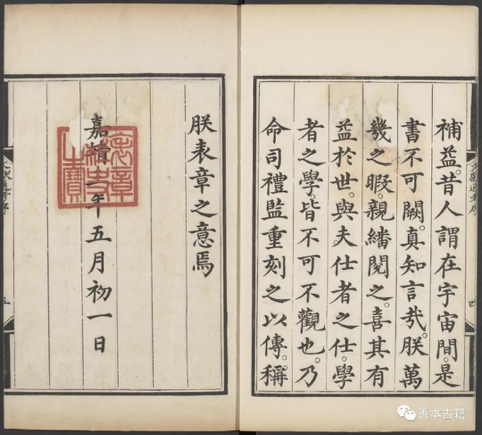 補益。昔人謂在宇宙間。是
書不可闕。真知言哉。朕萬
幾之暇。親繙閱之。喜其有
益於世。與夫仕者之仕。學
者之學。皆不可不觀也。乃
命司禮監重刻之以傳。稱
朕表章之意焉
嘉靖 年五月初一日
表章經史之寶
善本古籍